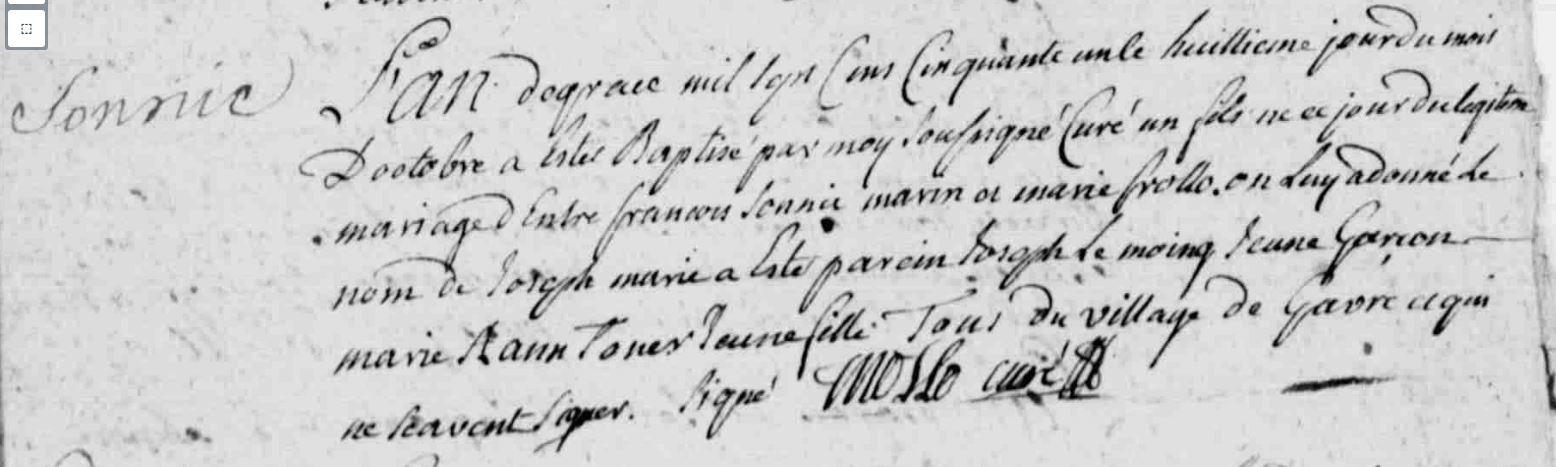 Sonnic
L'an de grace mil sept cens cinquante un le huittieme jour du mois
D'octobre a esté Baptisé par moy soussigné Curé un fils né ce jour du legitime
mariage d'Entre francois Sonnic marin et marie frollo. on Luy a donné Le
nom de Joseph marie a Esté parein Joseph Le moing Jeune Garçon
marie Jeune fille. Tous du village de Gavre et qui
ne scavent signer. signé curé